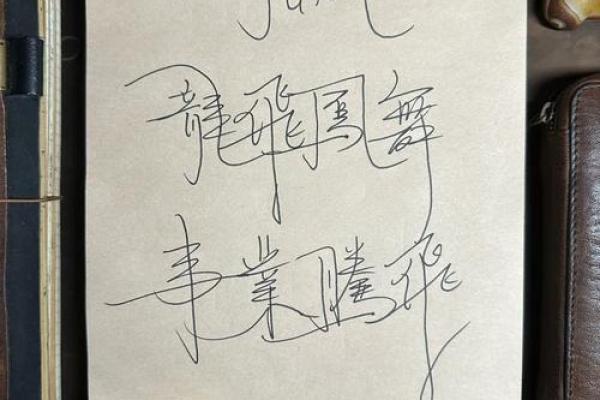 龍飛鳳舞
事業騰飛